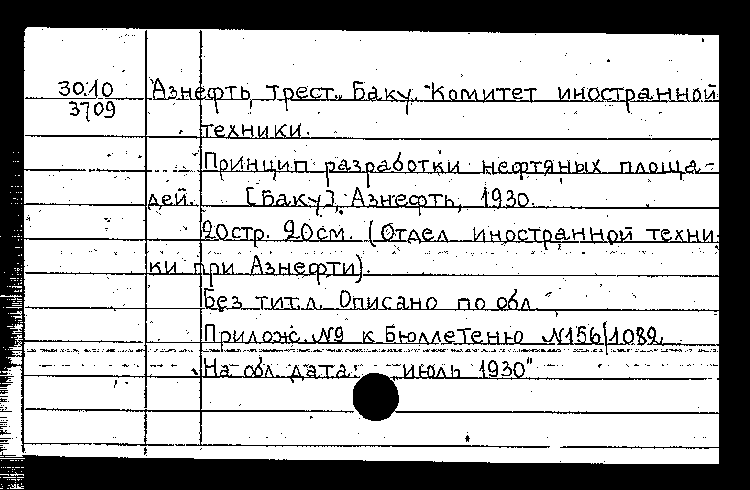 30.10
3709
Азнефть, трест. Баку. Комитет иностранной
техники.
Принцип разработки нефтяных площа-
дей. [Баку], Азнефть, 1930.
20стр. 20см. (Отдел иностранной техни-
ки при Азнефти).
Без тит.л. Описано по обл.
Прилож. №9 к Бюллетеню №156/1082.
На обл. дата: "июль 1930"